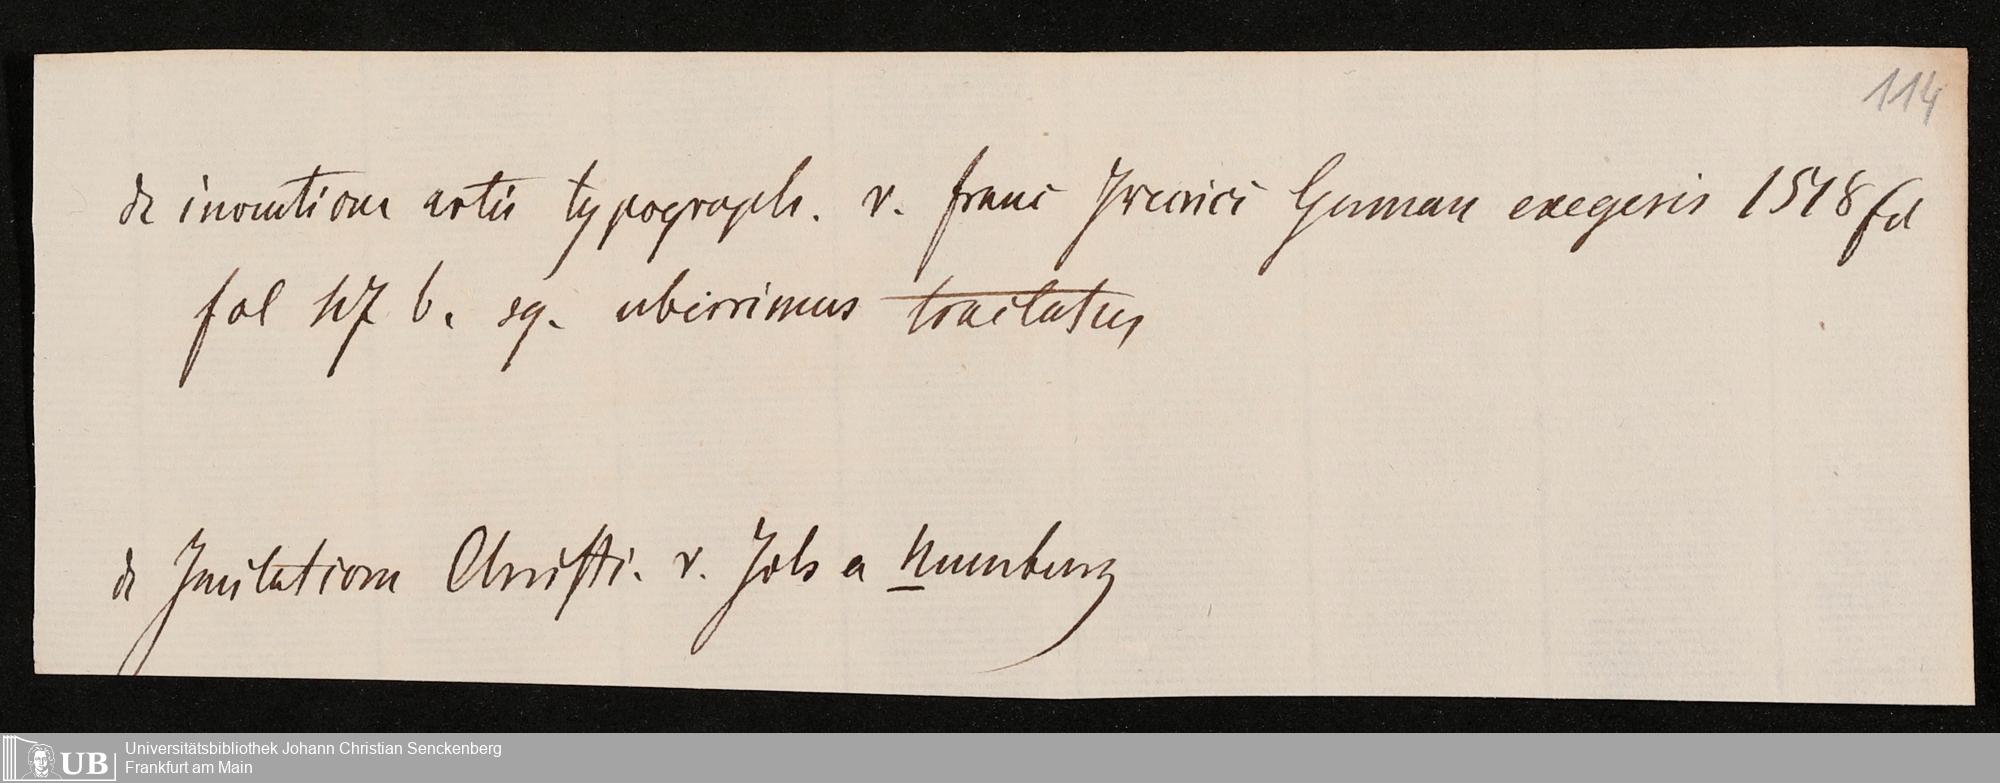 114
de inventione artis typograph. v. Franc Irenici German exegesis 1518 fol
fol 47 b. sq. uberrimus tractatus
de Imitatione Christi. v. Johs a Numburg
UB
Universitätsbibliothek Johann Christian Senckenberg
Frankfurt am Main